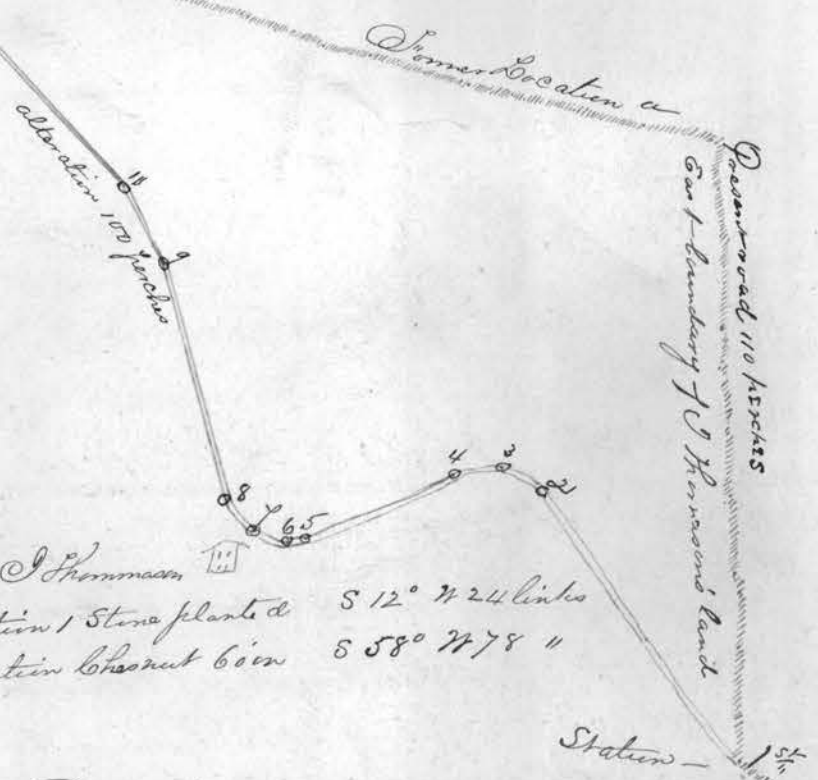 Former Location a
Present road 110 perches
East boundary of J Thomason's land
alteration 100 perches
10
9
8
7
6
5
4
3
2
J Thommason
tion 1 Stone planted S 12° W 24 links
tion Chesnut 60 in S 58° W 78 "
Station 1st